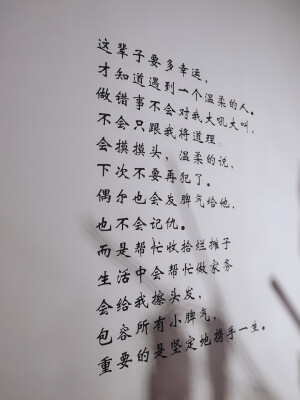 这辈子要多幸运，
才知道遇到一个温柔的人。
做错事不会对我大吼大叫，
不会只跟我将道理
会摸摸头，温柔的说，
下次不要再犯了。
偶尔也会发脾气给他，
也不会记仇。
而是帮忙收拾烂摊子
生活中会帮忙做家务
会给我擦头发，
包容所有小脾气，
重要的是坚定地携手一生。